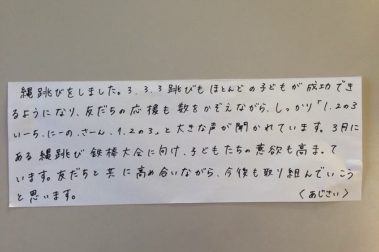 縄跳びをしました。3、3、3跳びもほとんどの子どもが成功でき
るようになり、友だちの応援も数をかぞえながら、しっかり「1、2の3
いーち、にーの、さーん、1、2の3。と大きな声が聞かれています。3月に
ある縄跳び鉄棒大会に向け、子どもたちの意欲も高まって
います。友だちと共に高め合いながら、今後も取り組んでいこう
と思います。
(あじさい)